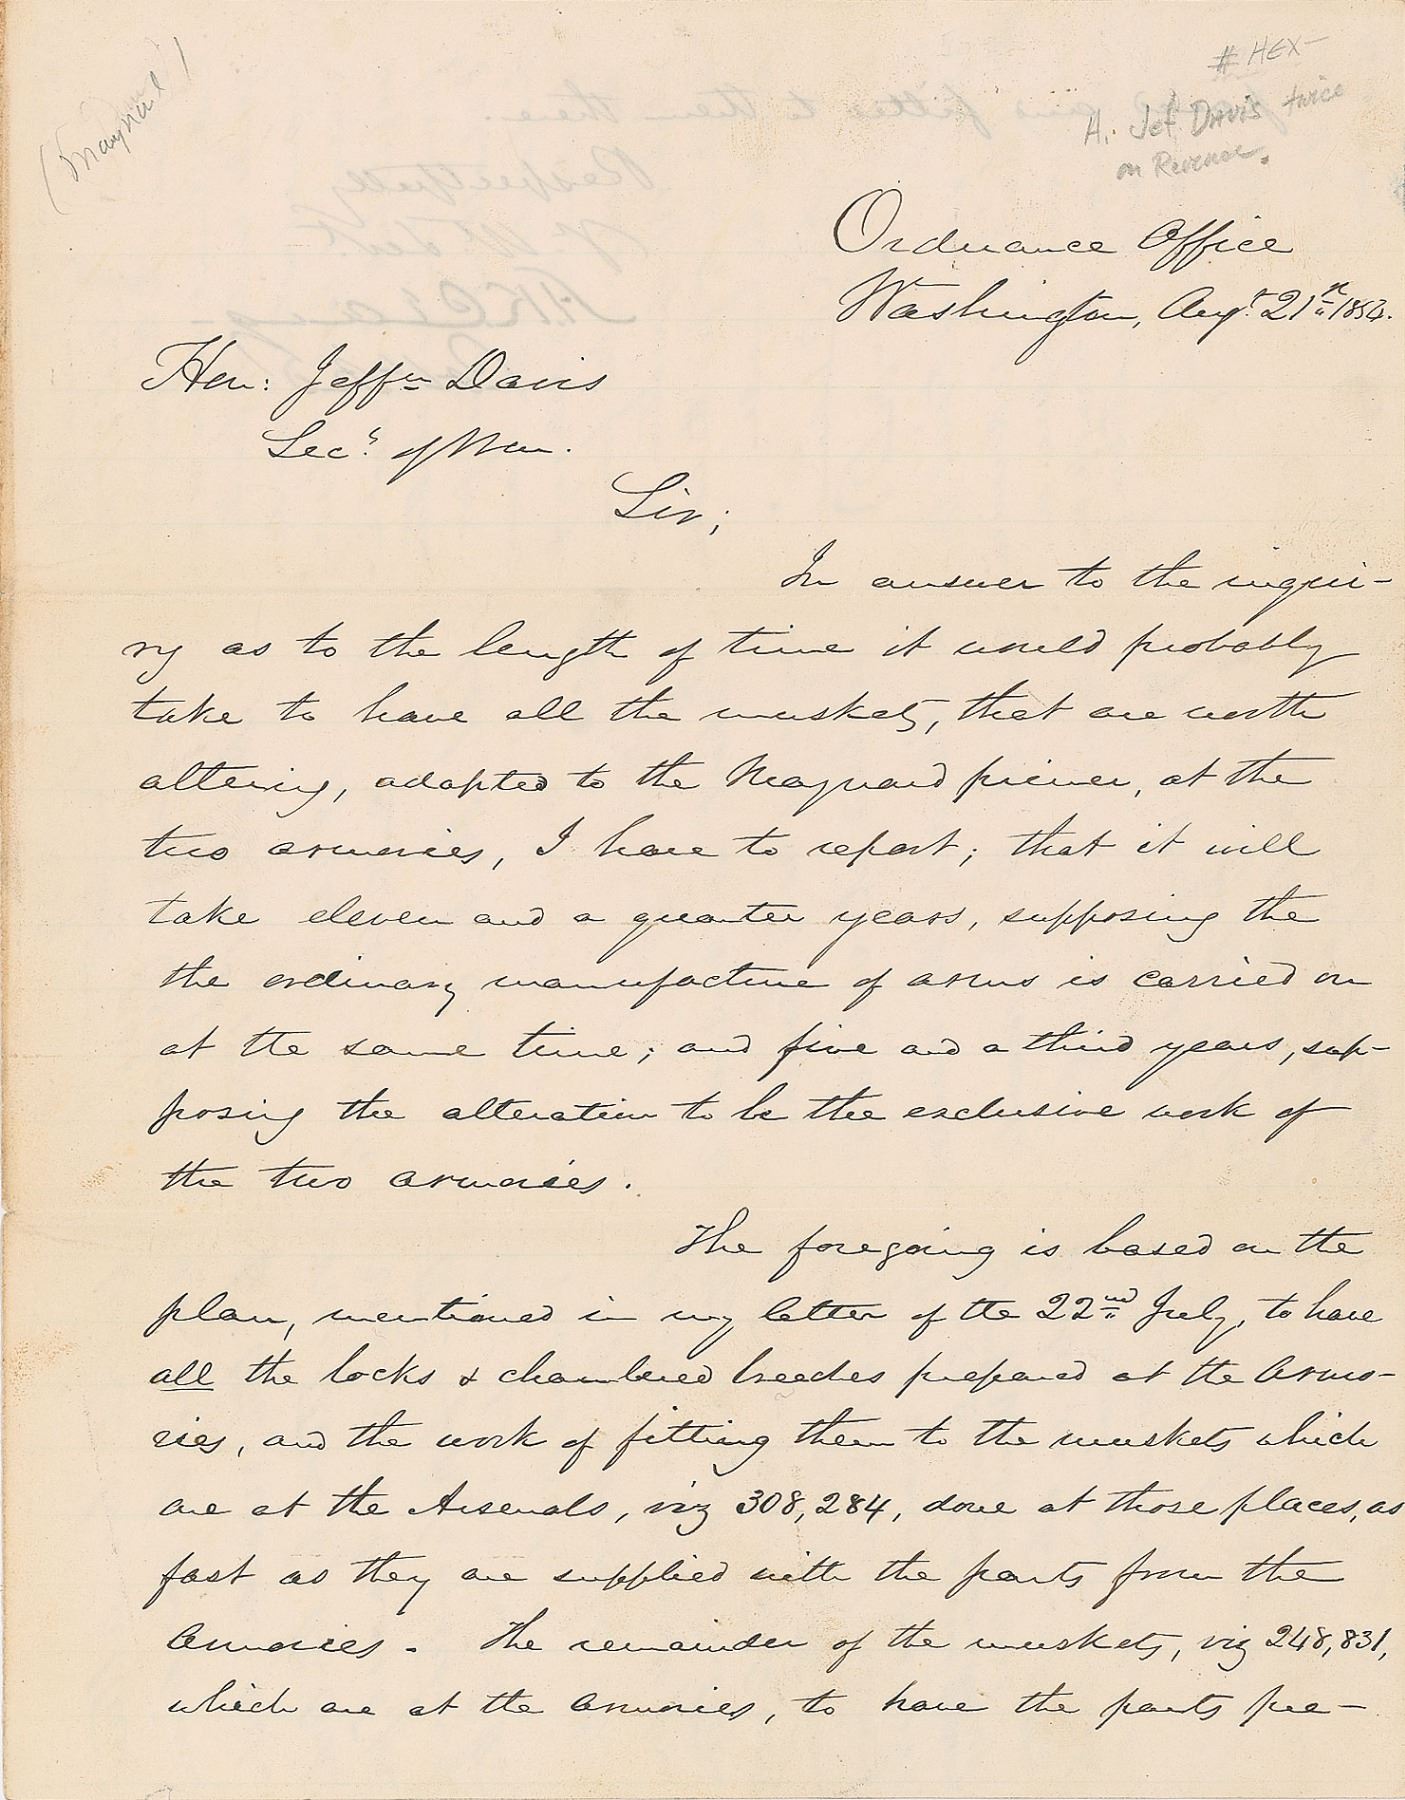 (Maynard)
# HEX-
H. Jef. DAVIS twice
on Reverse.
Ordnance Office
Washington, Augt. 21st 1854.
Hon: Jeffn Davis
Secy. of War.
Sir;
In answer to the inqui-
ry as to the length of time it would probably
take to have all the muskets, that are worth
altering, adapted to the Maynard primer, at the
two armories, I have to report; that it will
take eleven and a quarter years, supposing the
the ordinary manufacture of arms is carried on
at the same time; and five and a third years, sup-
posing the alteration to be the exclusive work of
the two armories.
The foregoing is based on the
plan, mentioned in my letter of the 22nd July, to have
all the locks & chambered breeches prepared at the Armo-
ries, and the work of fitting them to the muskets which
are at the Arsenals, viz 308,284, done at those places, as
fast as they are supplied with the parts from the
Armories. The remainder of the muskets, viz 248,831,
which are at the Armories, to have the parts pre-